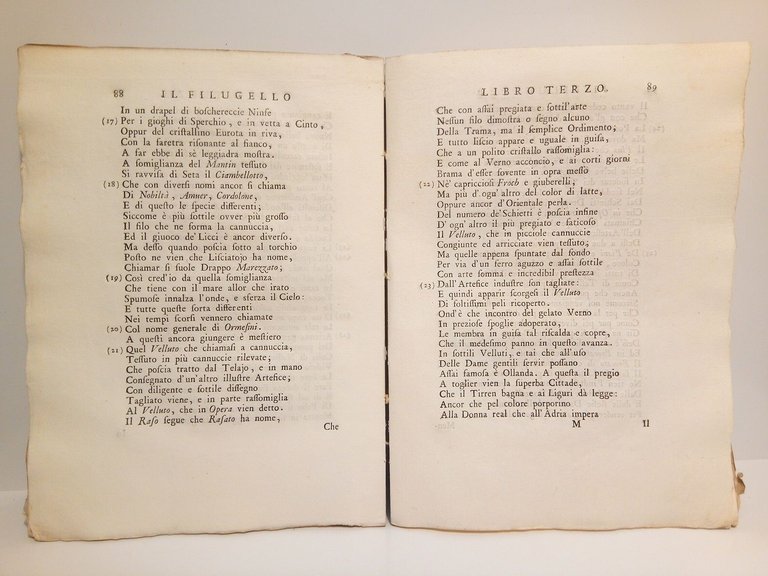 88 IL FILUGELLO
In un drapel di boschereccie Ninfe
(17) Per i gioghi di Sperchio, e in vetta a Cinto,
Oppur del cristallino Eurota in riva,
Con la faretra risonante al fianco,
A far ebbe di sè leggiadra mostra.
A somiglianza del Mantin tessuto
Si ravvisa di Seta il Ciambellotto,
(18) Che con diversi nomi ancor si chiama
Di Nobiltà, Amuer, Cordolone,
E di questo le specie differenti;
Siccome è più sottile ovver più grosso
Il filo che ne forma la cannuccia,
Ed il giuoco de' Licci è ancor diverso.
Ma desso quando poscia sotto al torchio
Posto ne vien che Lisciatojo ha nome,
Chiamar si suole Drappo Marezzato;
(19) Così cred'io da quella somiglianza
Che tiene con il mare allor che irato
Spumose innalza l'onde, e sferza il Cielo:
E tutte queste sorta differenti
Nei tempi scorsi vennero chiamate
(20) Col nome generale di Ormesini.
A questi ancora giungere è mestiero
(21) Quel Velluto che chiamasi a cannuccia,
Tessuto in più cannuccie rilevate;
Che poscia tratto dal Telajo, e in mano
Consegnato d'un'altro illustre Artefice;
Con diligente e sottile dissegno
Tagliato viene, e in parte rassomiglia
Al Velluto, che in Opera vien detto.
Il Raso segue che Rasato ha nome,
Che
LIBRO TERZO. 89
Che con assai pregiata e sottil'arte
Nessun filo dimostra o segno alcuno
Della Trama, ma il semplice Ordimento;
E tutto liscio appare e uguale in guisa,
Che a un polito cristallo rassomiglia:
E come al Verno acconcio, e ai corti giorni
Brama d'esser sovente in opra messo
(22) Nè capricciosi Froch e giuberelli;
Ma più d'ogn'altro del color di latte,
Oppure ancor d'Orientale perla.
Del numero de'Schietti è poscia infine
D'ogn'altro il più pregiato e faticoso
Il Velluto, che in piccole cannuccie
Congiunte ed arricciate vien tessuto;
Ma quelle appena spuntate dal fondo
Per via d'un ferro aguzzo e assai sottile
Con arte somma e incredibil prestezza
(23) Dall'Artefice industre son tagliate:
E quindi apparir scorgesi il Velluto
Di foltissimi peli ricoperto.
Ond'è che incontro del gelato Verno
In preziose spoglie adoperato,
Le membra in guisa tal riscalda e copre,
Che il medesimo panno in questo avanza.
In sottili Velluti, e tai che all'uso
Delle Dame gentili servir possano
Assai famosa è Ollanda. A questa il pregio
A toglier vien la superba Cittade,
Che il Tirren bagna e ai Liguri dà legge:
Ancor che pel colore porporino
Alla Donna real che all'Adria impera
M Il